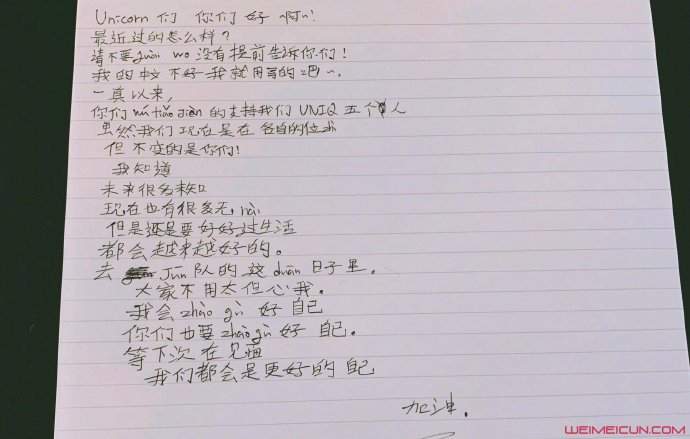 Unicorn 们 你们 好 啊~!
最近过的怎么样？
请不要guài wo 没有提前告诉你们！
我的中文不好 我就用写的吧~.
一真以来,
你们wú tiáo jiàn 的支持我们 UNIQ 五个人
虽然我们现在是在各自的位
但不变的是你们!
我知道
未来很多未知
现在也有很多无 nài
但是还是要好好过生活
都会越来越好的。
去 Jūn 队的这 duàn 日子里.
大家不用太但心我.
我会zhào gù 好 自己
你们也要zhào gù 好 自己.
等下次在见面
我们都会是更好的自己
加油.
WEIMEICUN.COM